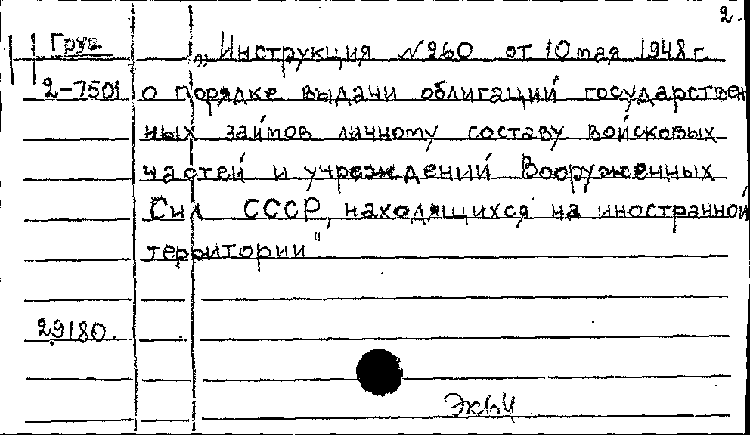 2.
Груз. „Инструкция №260 от 10 мая 1948 г.
2-7501 о порядке выдачи облигаций государствен
ных займов личному составу войсковых
частей и учреждений Вооруженных
Сил СССР, находящихся на иностранной
территории"
29180.